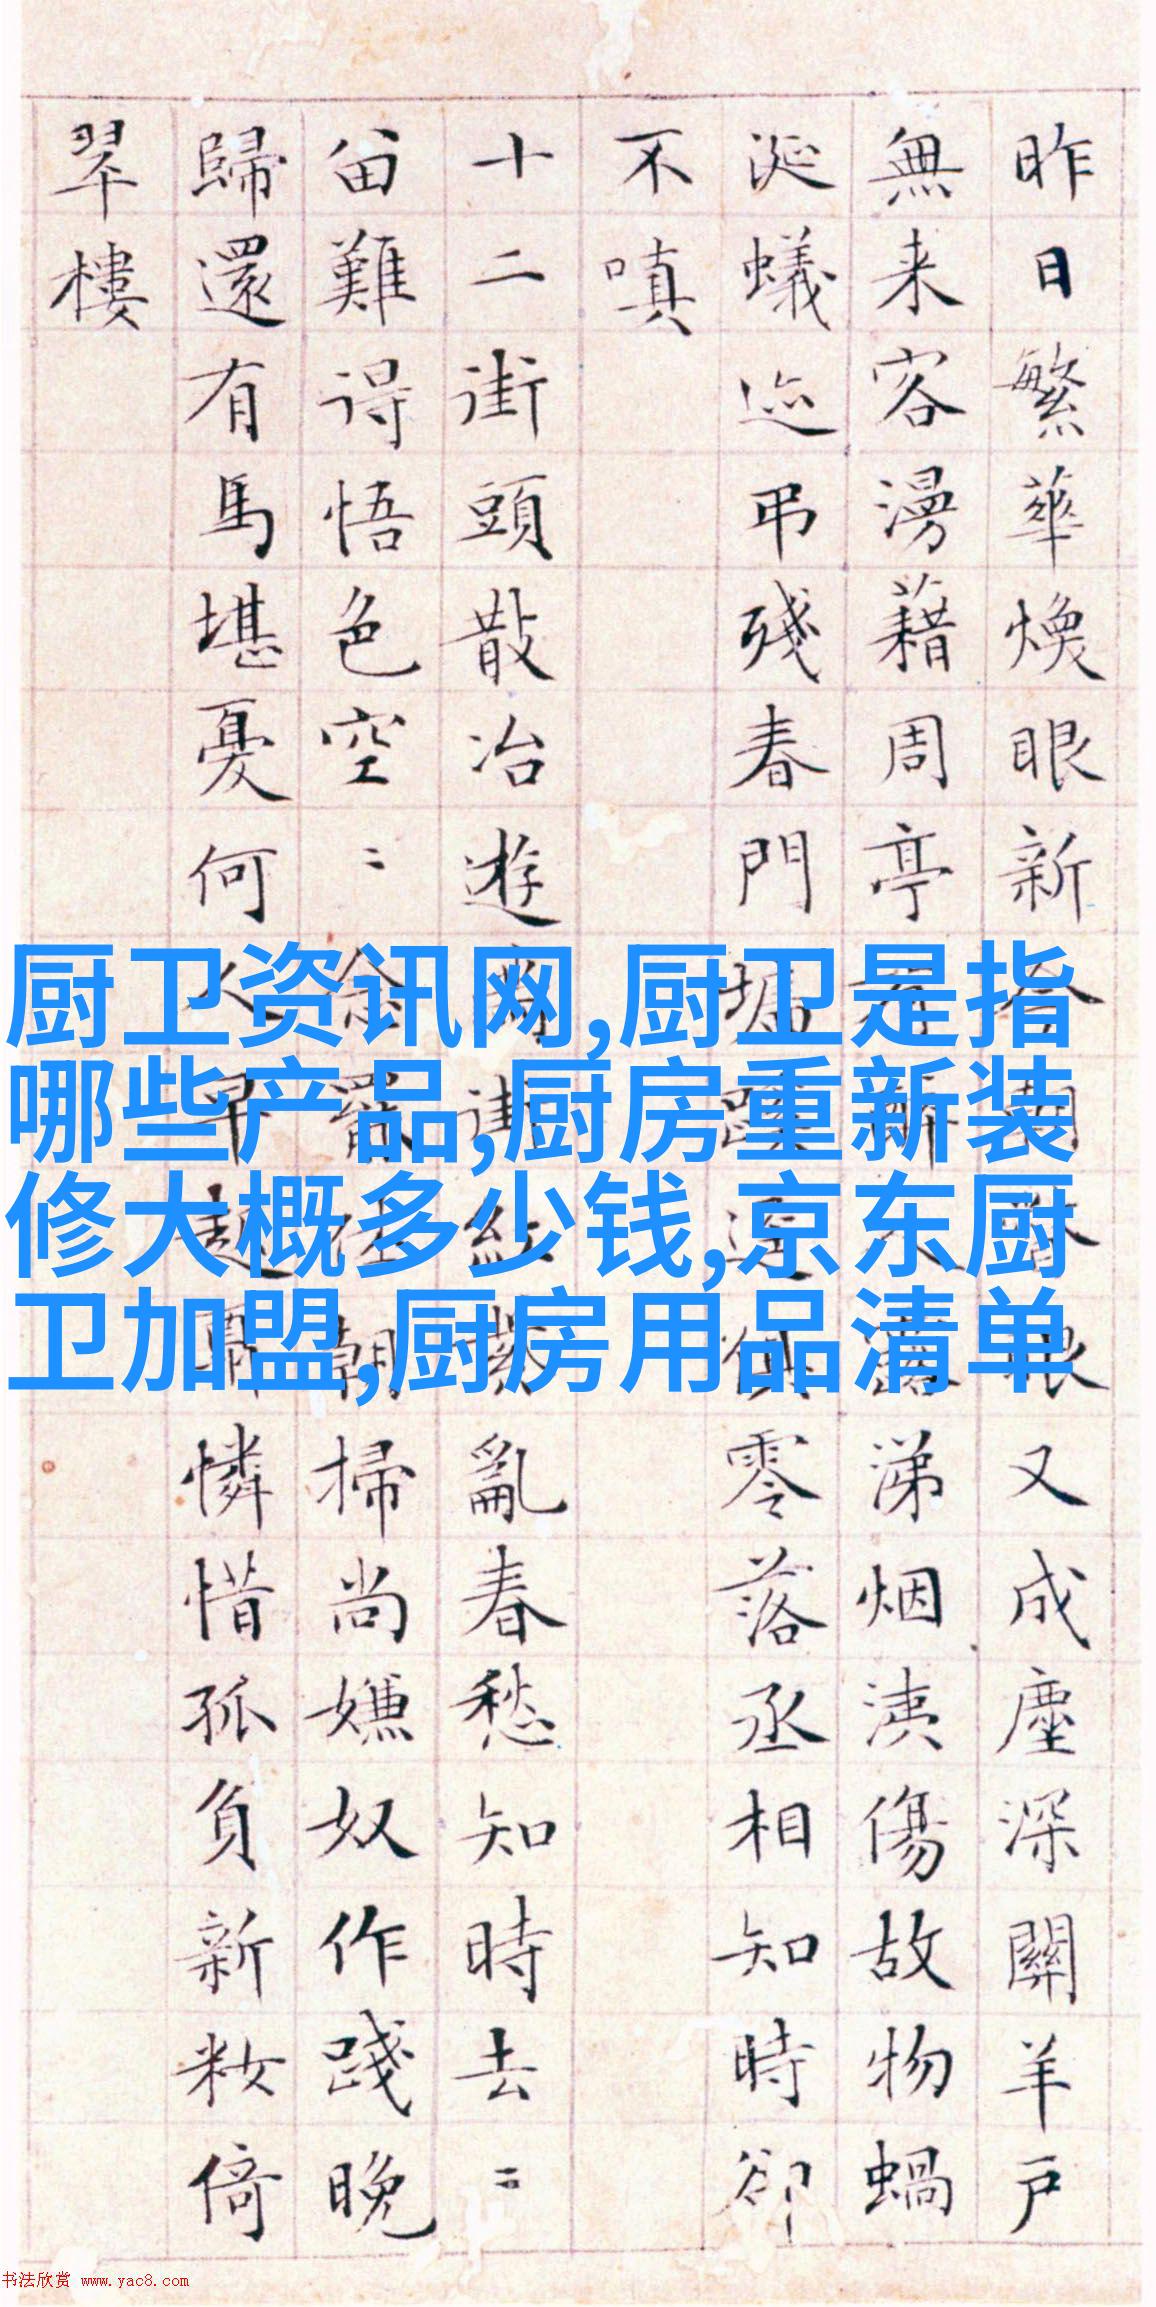 昨日繁華煥眼新又成塵深關羊戸
無来客漫藉周亭涕烟洟傷故物蝸
涎蟻迹弔殘春門零落丞相知時卻
不嗔
十二街頭散冶遊亂春愁知時去〻
留難得悟色空〻掃尚嫌奴作踐晚
歸還有馬堪憂何憐惜孤負新粧倚
翠樓
厨卫资讯网,厨卫是指
哪些产品,厨房重新装
修大概多少钱,京东厨
卫加盟,厨房用品清单
书法欣赏 www.yac8.com